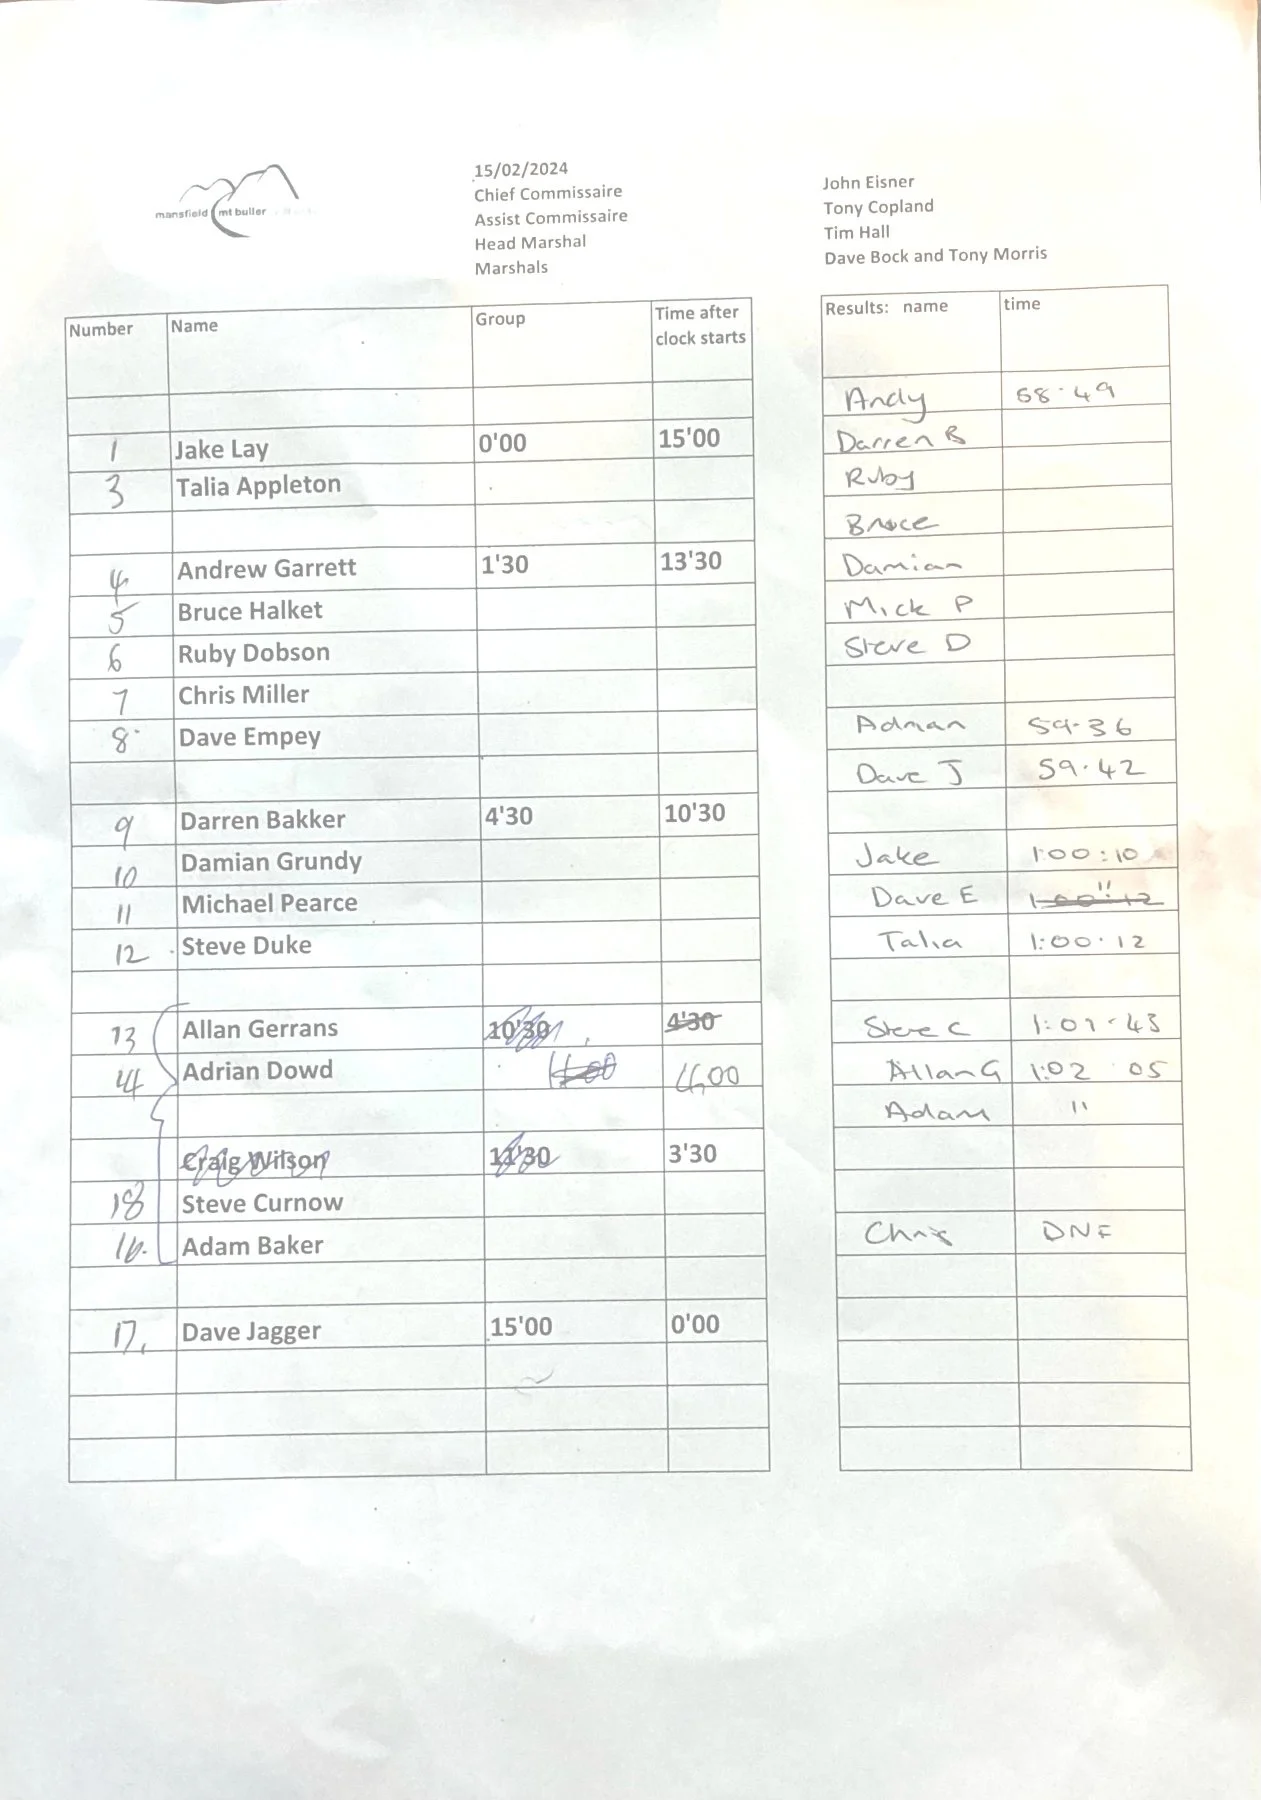 mansfield mt buller
15/02/2024
Chief Commissaire
Assist Commissaire
Head Marshal
Marshals
John Eisner
Tony Copland
Tim Hall
Dave Bock and Tony Morris
Number Name Group Time after clock starts
1 Jake Lay 0'00 15'00
3 Talia Appleton
4 Andrew Garrett 1'30 13'30
5 Bruce Halket
6 Ruby Dobson
7 Chris Miller
8 Dave Empey
9 Darren Bakker 4'30 10'30
10 Damian Grundy
11 Michael Pearce
12 Steve Duke
13 Allan Gerrans 10'30 4'30
14 Adrian Dowd 4,00
Craig Wilson 11'30 3'30
Steve Curnow
16. Adam Baker
17. Dave Jagger 15'00 0'00
Results: name time
Andy 58.49
Darren B
Ruby
Bruce
Damian
Mick P
Steve D
Adrian 59.36
Dave J 59.42
Jake 1:00:10
Dave E 1:00:12 "
Talia 1:00.12
Steve C 1:01.43
Allan G 1:02 05
Adam "
Chris DNF